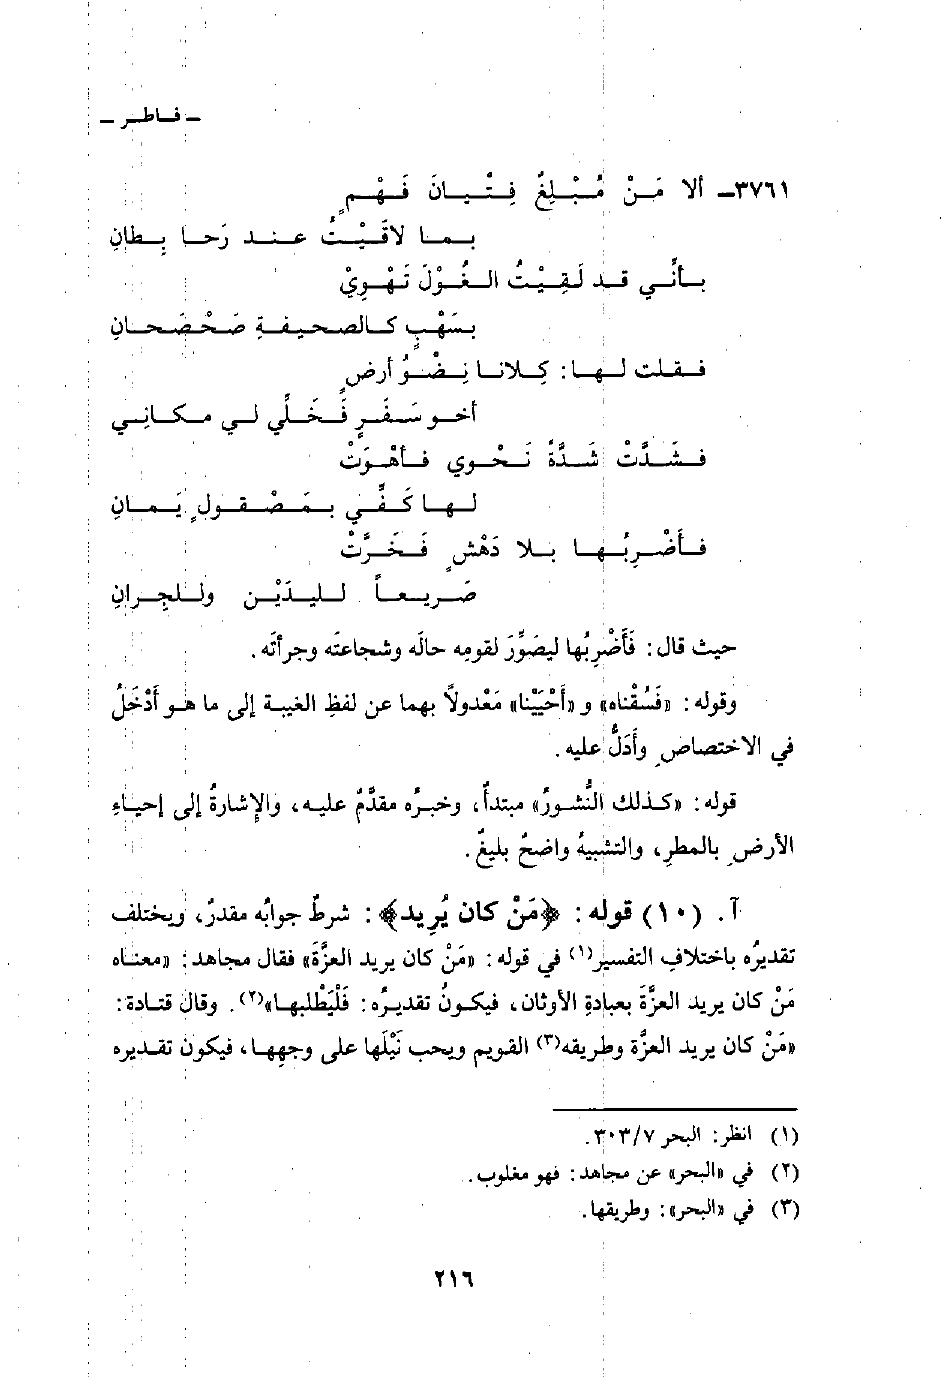 ـ فاطر ـ
٣٧٦١ـ ألا مَنْ مُبْلِغٌ فِتْيانَ فَهْمٍ
بما لاقَيْتُ عند رَحا بِطانِ
بأنِّي قد لَقِيْتُ الغُوْلَ تَهْوِيْ
بسَهْبٍ كالصحيفةِ صَحْصَحانِ
فقلت لها: كِلانا نِضْوُ أرضٍ
أخو سَفَرٍ فَخَلِّي لي مكانِي
فشَدَّتْ شَدَّةً نَحْوي فأهْوَتْ
لها كَفِّي بمَصْقولٍ يَمانِ
فأَضْرِبُها بلا دَهْشٍ فَخَرَّتْ
صَريعاً لليدَيْن وللجِرانِ
حيث قال: فَأَضْرِبُها ليصَوِّرَ لقومِه حالَه وشجاعتَه وجرأتَه.
وقوله: «فَسُقْناه» و «أَحْيَيْنا» مَعْدولاً بهما عن لفظِ الغيبة إلى ما هو أَدْخَلُ
في الاختصاصِ وأَدَلُّ عليه.
قوله: «كذلك النُّشورُ» مبتدأٌ، وخبرُه مقدَّمٌ عليه، والإِشارةُ إلى إحياءِ
الأرضِ بالمطرِ، والتشبيهُ واضحٌ بليغٌ.
آ. (١٠) قوله: ﴿مَنْ كان يُرِيد﴾: شرطٌ جوابُه مقدرٌ، ويختلف
تقديرُه باختلافِ التفسير(١) في قوله: «مَنْ كان يريد العزَّةَ» فقال مجاهد: «معناه
مَنْ كان يريد العزَّةَ بعبادةِ الأوثان، فيكونُ تقديرُه: فَلْيَطْلبها»(٢). وقال قتادة:
«مَنْ كان يريد العزَّة وطريقه(٣) القويم ويحب نَيْلَها على وجهِها، فيكون تقديره
(١) انظر: البحر ٣٠٣/٧.
(٢) في «البحر» عن مجاهد: فهو مغلوب.
(٣) في «البحر»: وطريقها.
٢١٦